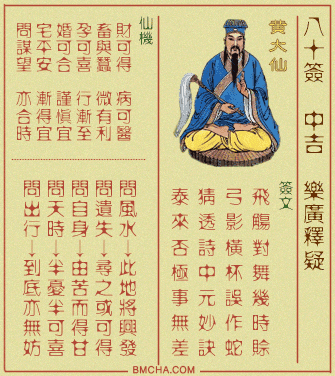 八十簽　中吉　樂廣釋疑
黃大仙
簽文
飛觴對舞幾時賒
弓影橫杯誤作蛇
猜透詩中元妙訣
泰來否極事無差
仙機
財可得　病可醫
畜與蠶　微有利
孕可喜　行漸至
婚可合　謹慎宜
宅平安　漸得宜
問謀望　亦合時
問風水→此地將興發
問遺失→尋之或可得
問自身→由苦而得甘
問天時→半憂半可喜
問出行→到底亦無妨
BMCHA.COM